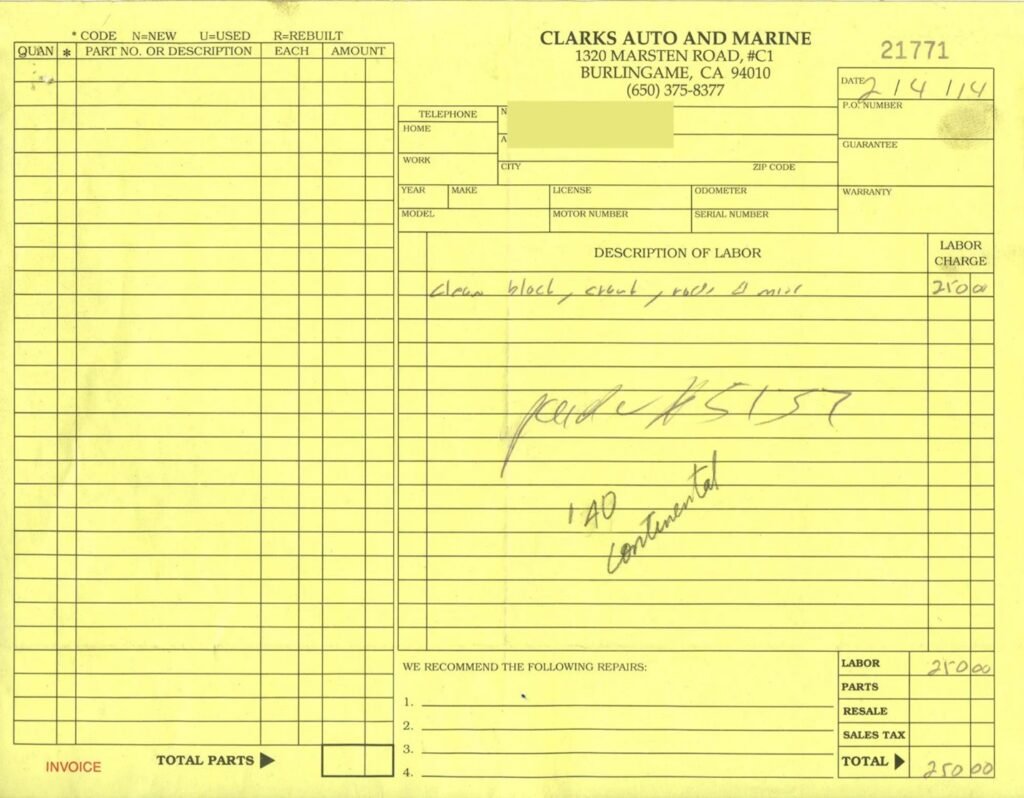 * CODE N=NEW U=USED R=REBUILT
QUAN * PART NO. OR DESCRIPTION EACH AMOUNT
TOTAL PARTS
INVOICE
CLARKS AUTO AND MARINE
1320 MARSTEN ROAD, #C1
BURLINGAME, CA 94010
(650) 375-8377
21771
DATE 2 14 114
P.O. NUMBER
GUARANTEE
WARRANTY
TELEPHONE
HOME
WORK
N
A
CITY ZIP CODE
YEAR MAKE LICENSE ODOMETER
MODEL MOTOR NUMBER SERIAL NUMBER
DESCRIPTION OF LABOR LABOR CHARGE
clean block, crank, rods & misc 250 00
#5157
IAO
continental
WE RECOMMEND THE FOLLOWING REPAIRS:
1.
2.
3.
4.
LABOR 250 00
PARTS
RESALE
SALES TAX
TOTAL 250 00